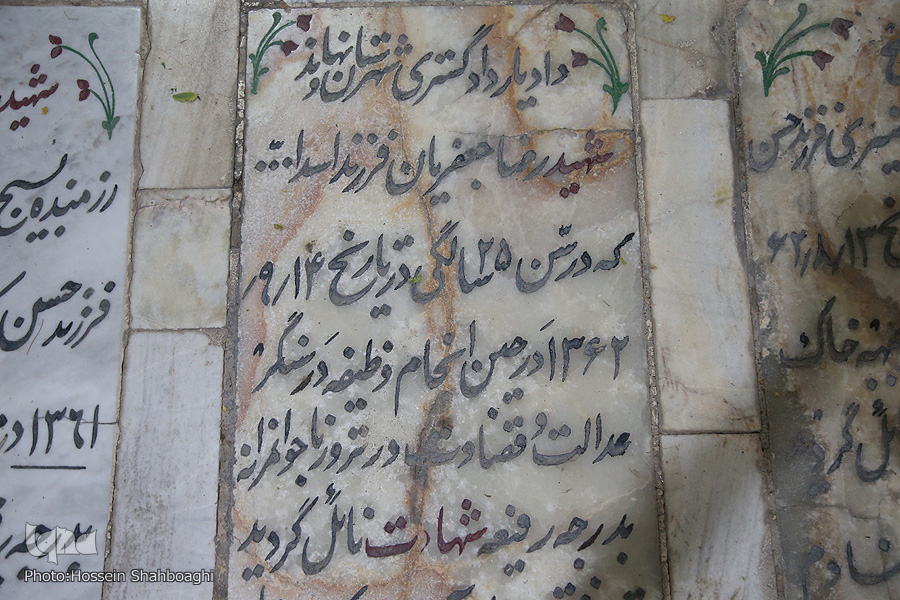 دادیار دادگستری شهرستان نهاوند
شهید رضا جعفریان فرزند اسدا...
که در سن ۲۵ سالگی در تاریخ ۱۴ر۹ر
۱۳۶۲ در حین انجام وظیفه در سنگر
عدالت و قضاوت در ترور ناجوانمردانه
بدرجه رفیعه شهادت نائل گردید
شهید
رزمنده بسیج
فرزند حسن
۱۳۶۱ در
بدرجه
فرزند حسن
۶۲ر۸ر۱۳
خاک
نائل گردید
Photo:Hossein Shahboaghi